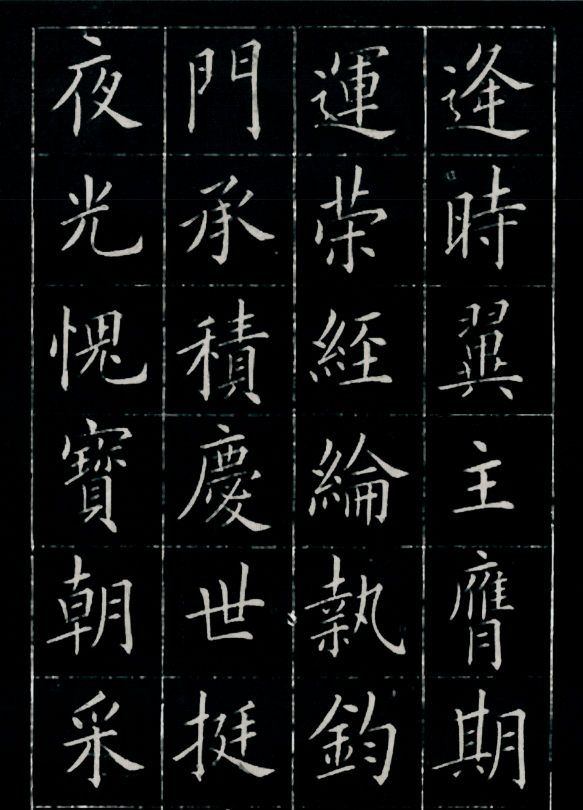 逢時翼主膺期
運荣經綸執鈞
門承積慶世挺
夜光愧寶朝采